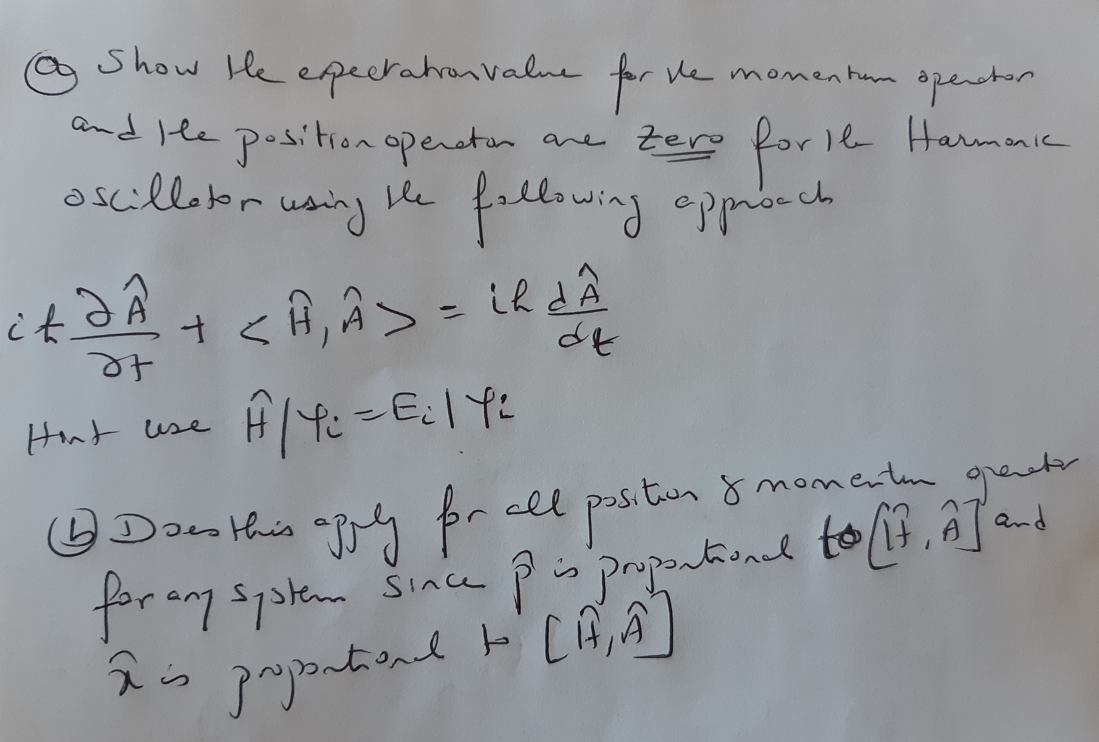 (a) Show the expectation value for the momentum operator
and the position operator are zero for the Harmonic
oscillator using the following approach
iℏ ∂Â/∂t + < Ĥ, Â > = iℏ dÂ/dt
Hint use Ĥ|Ψi = Ei|Ψi
(b) Does this apply for all position & momentum operator
for any system since p̂ is proportional to [Ĥ, Â] and
x̂ is proportional to [Ĥ, Â]